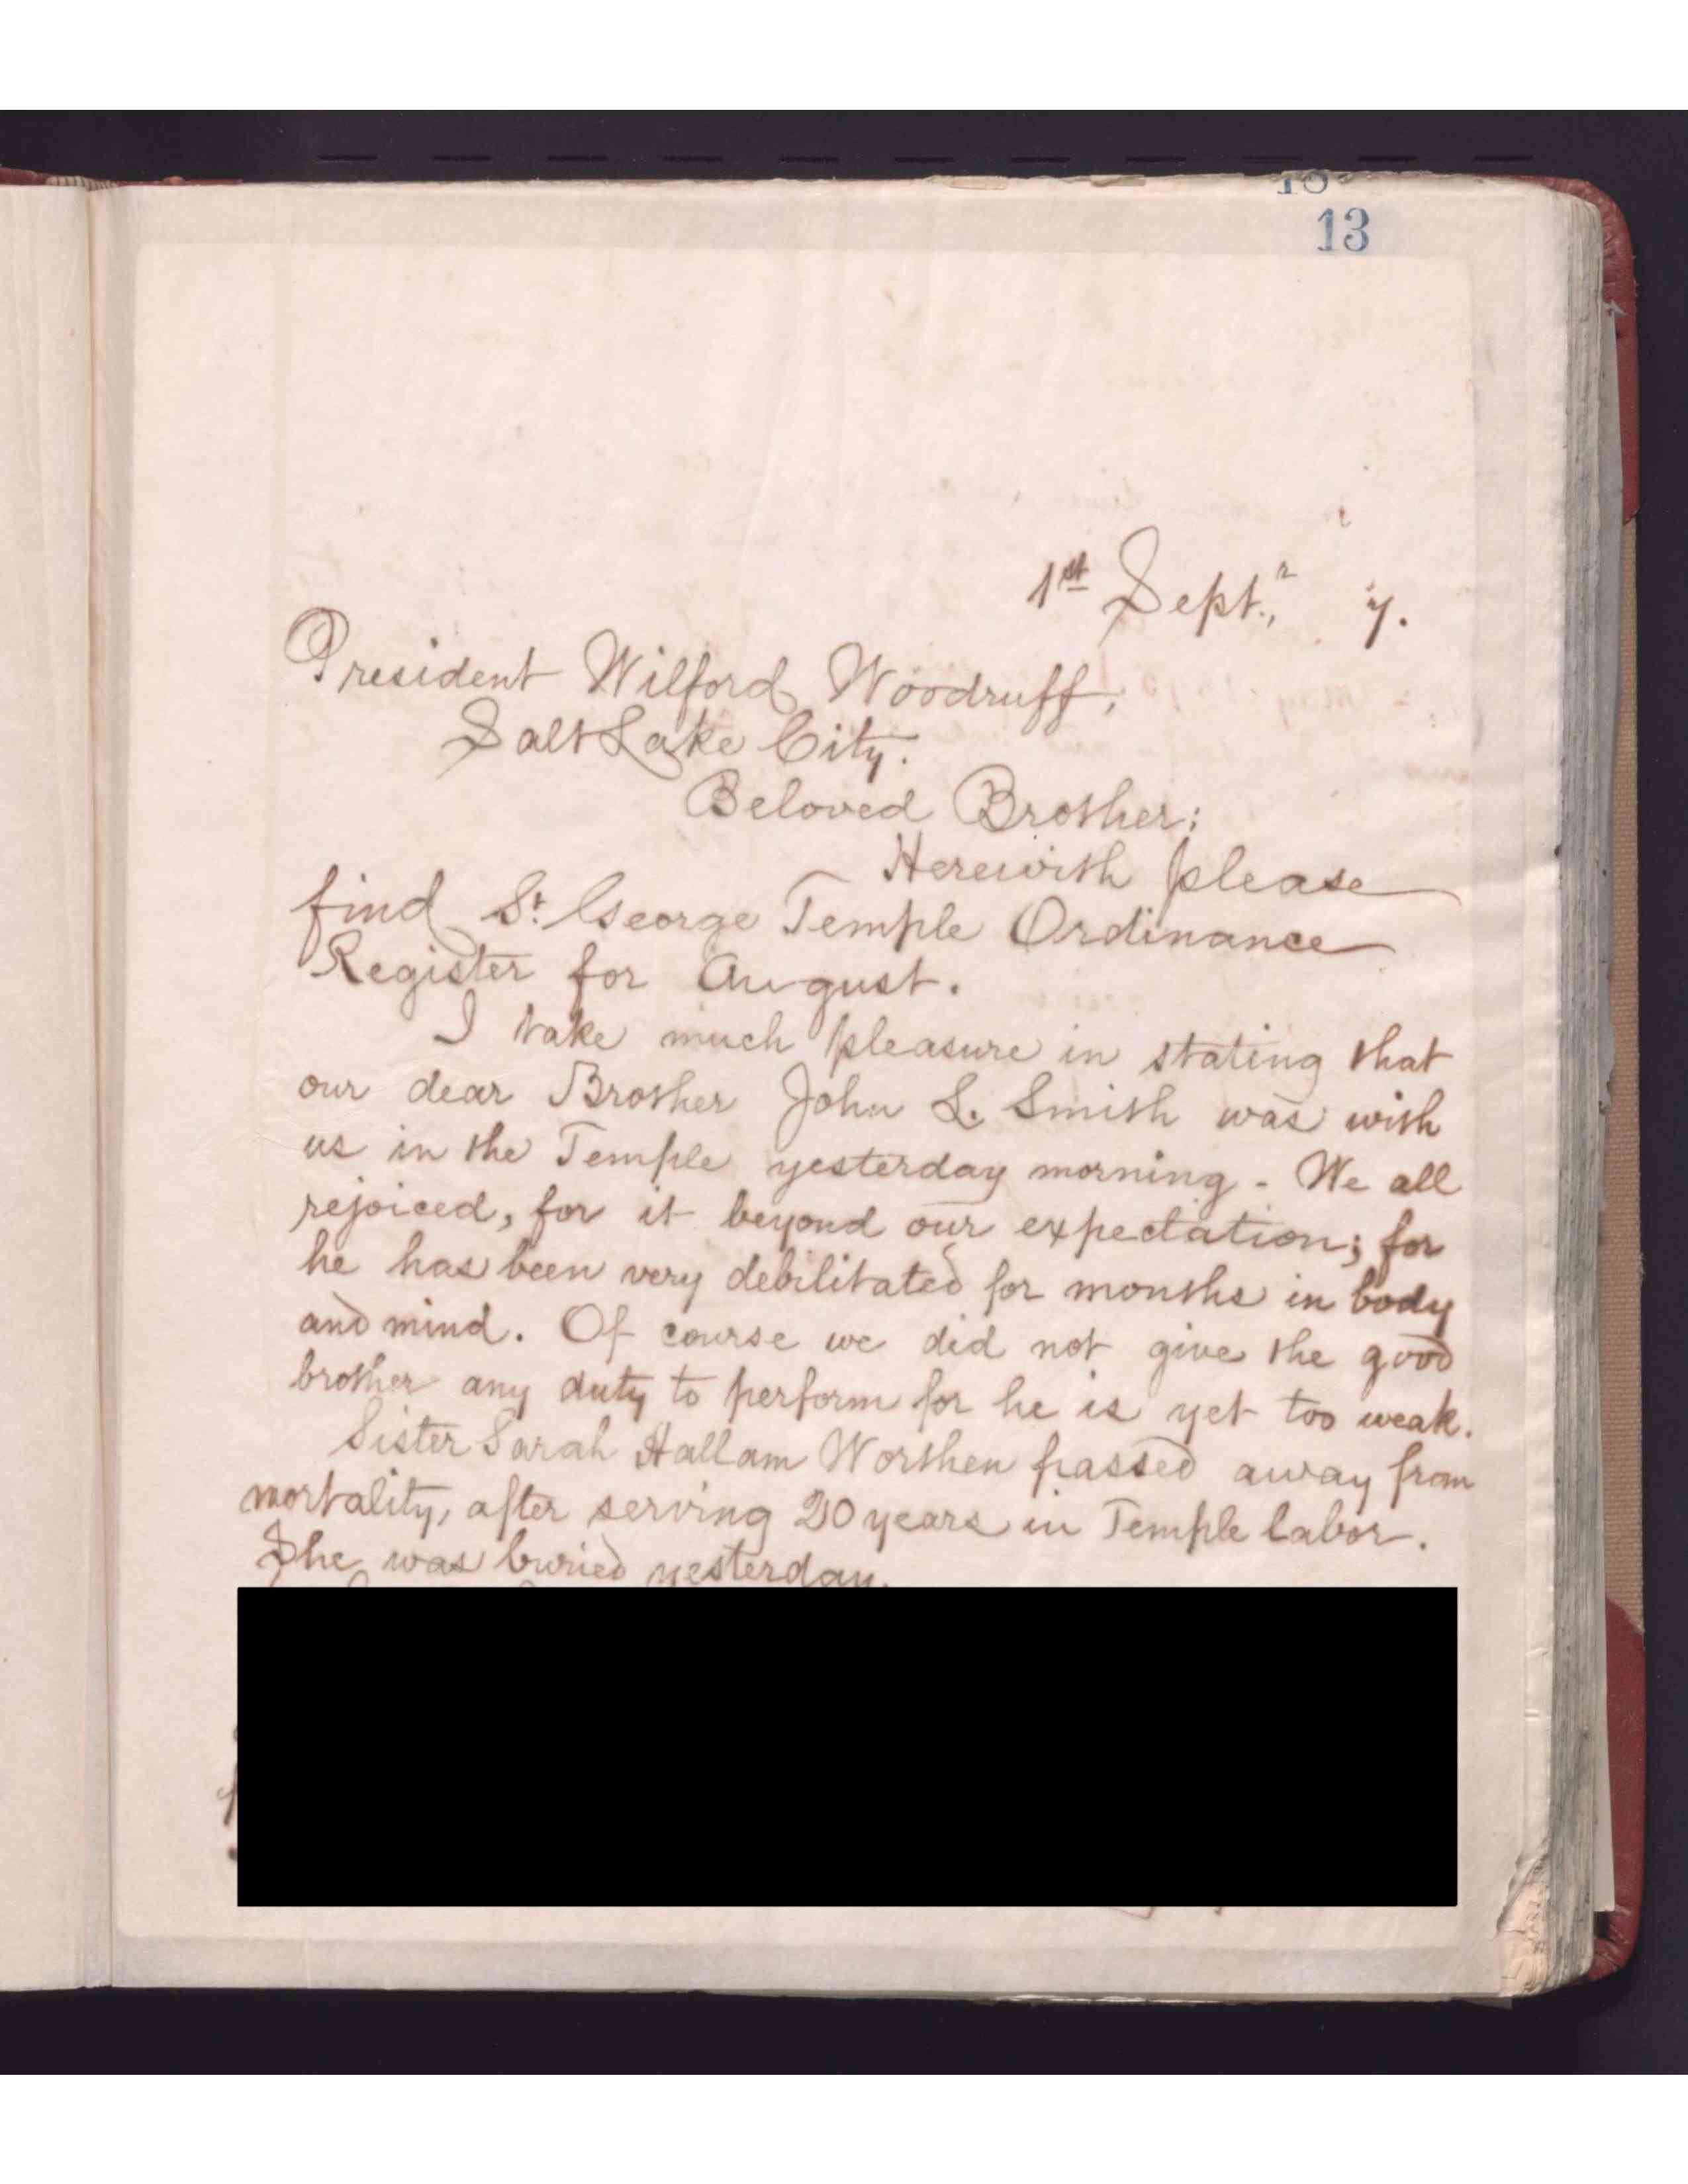 13
1st Sept.,r 7.
President Wilford Woodruff,
Salt Lake City.
Beloved Brother:
Herewith please
find St. George Temple Ordinance
Register for August.
I take much pleasure in stating that
our dear Brother John L. Smith was with
us in the Temple yesterday morning. We all
rejoiced, for it beyond our expectation; for
he has been very debilitated for months in body
and mind. Of course we did not give the good
brother any duty to perform for he is yet too weak.
Sister Sarah Hallam Worthen passed away from
mortality, after serving 20 years in Temple labor.
She was buried yesterday.